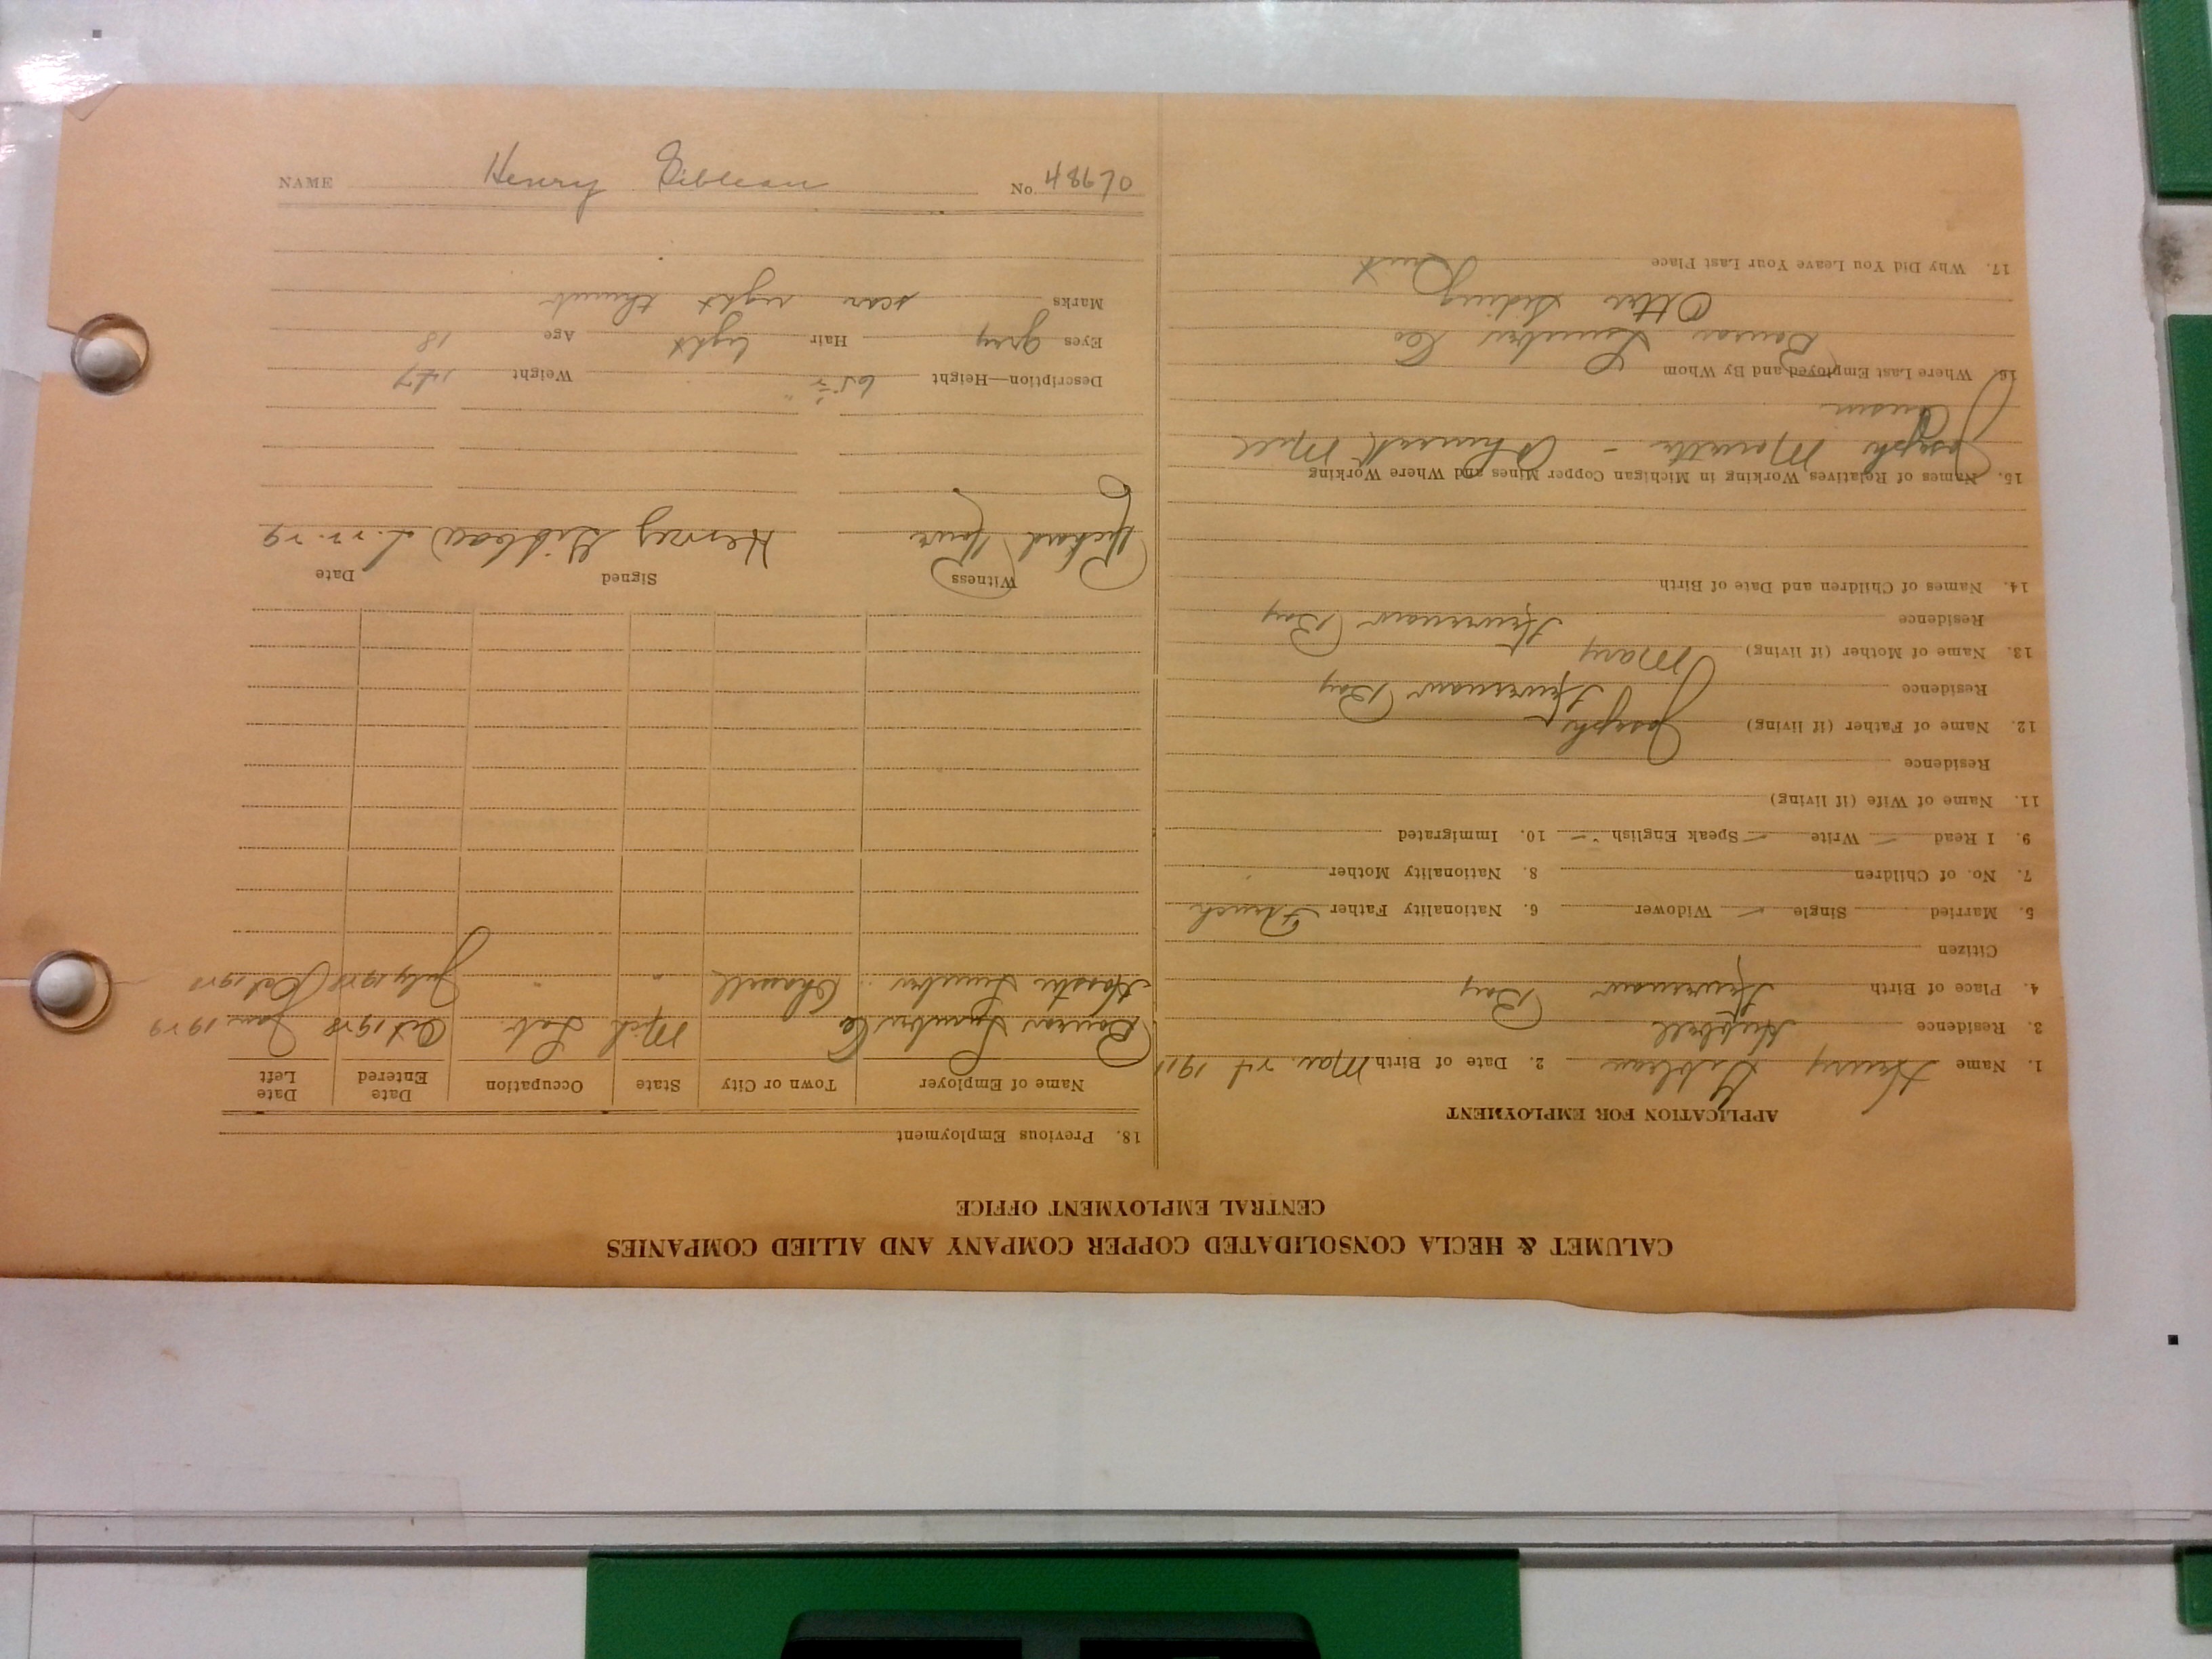 CALUMET & HECLA CONSOLIDATED COPPER COMPANY AND ALLIED COMPANIES
CENTRAL EMPLOYMENT OFFICE
APPLICATION FOR EMPLOYMENT
1. Name Henry Gibleau 2. Date of Birth Mar. 24 1911
3. Residence Hubbell
4. Place of Birth Keweenaw Bay
Citizen
5. Married Single ✓ Widower 6. Nationality Father French
7. No. of Children 8. Nationality Mother
9. I Read ✓ Write ✓ Speak English ✓ 10. Immigrated
11. Name of Wife (if living)
Residence
12. Name of Father (if living) Joseph
Residence Keweenaw Bay
13. Name of Mother (if living) Mary
Residence Keweenaw Bay
14. Names of Children and Date of Birth
15. Names of Relatives Working in Michigan Copper Mines and Where Working
Joseph - Ahmeek Mill
Cousin
16. Where Last Employed and By Whom
Lumber Co
Otter Siding
17. Why Did You Leave Your Last Place Quit
18. Previous Employment
Name of Employer Town or City State Occupation Date Entered Date Left
Lumber Co Mich Lab. Oct 1928 Jan 1929
Lumber Chassell " " July 1928 Oct 1928
Witness Signed Date
Richard Henry Gibleau 2.22.29
Description—Height 65½" Weight 147
Eyes grey Hair light Age 18
Marks scar right thumb
NAME Henry Gibleau No. 48670